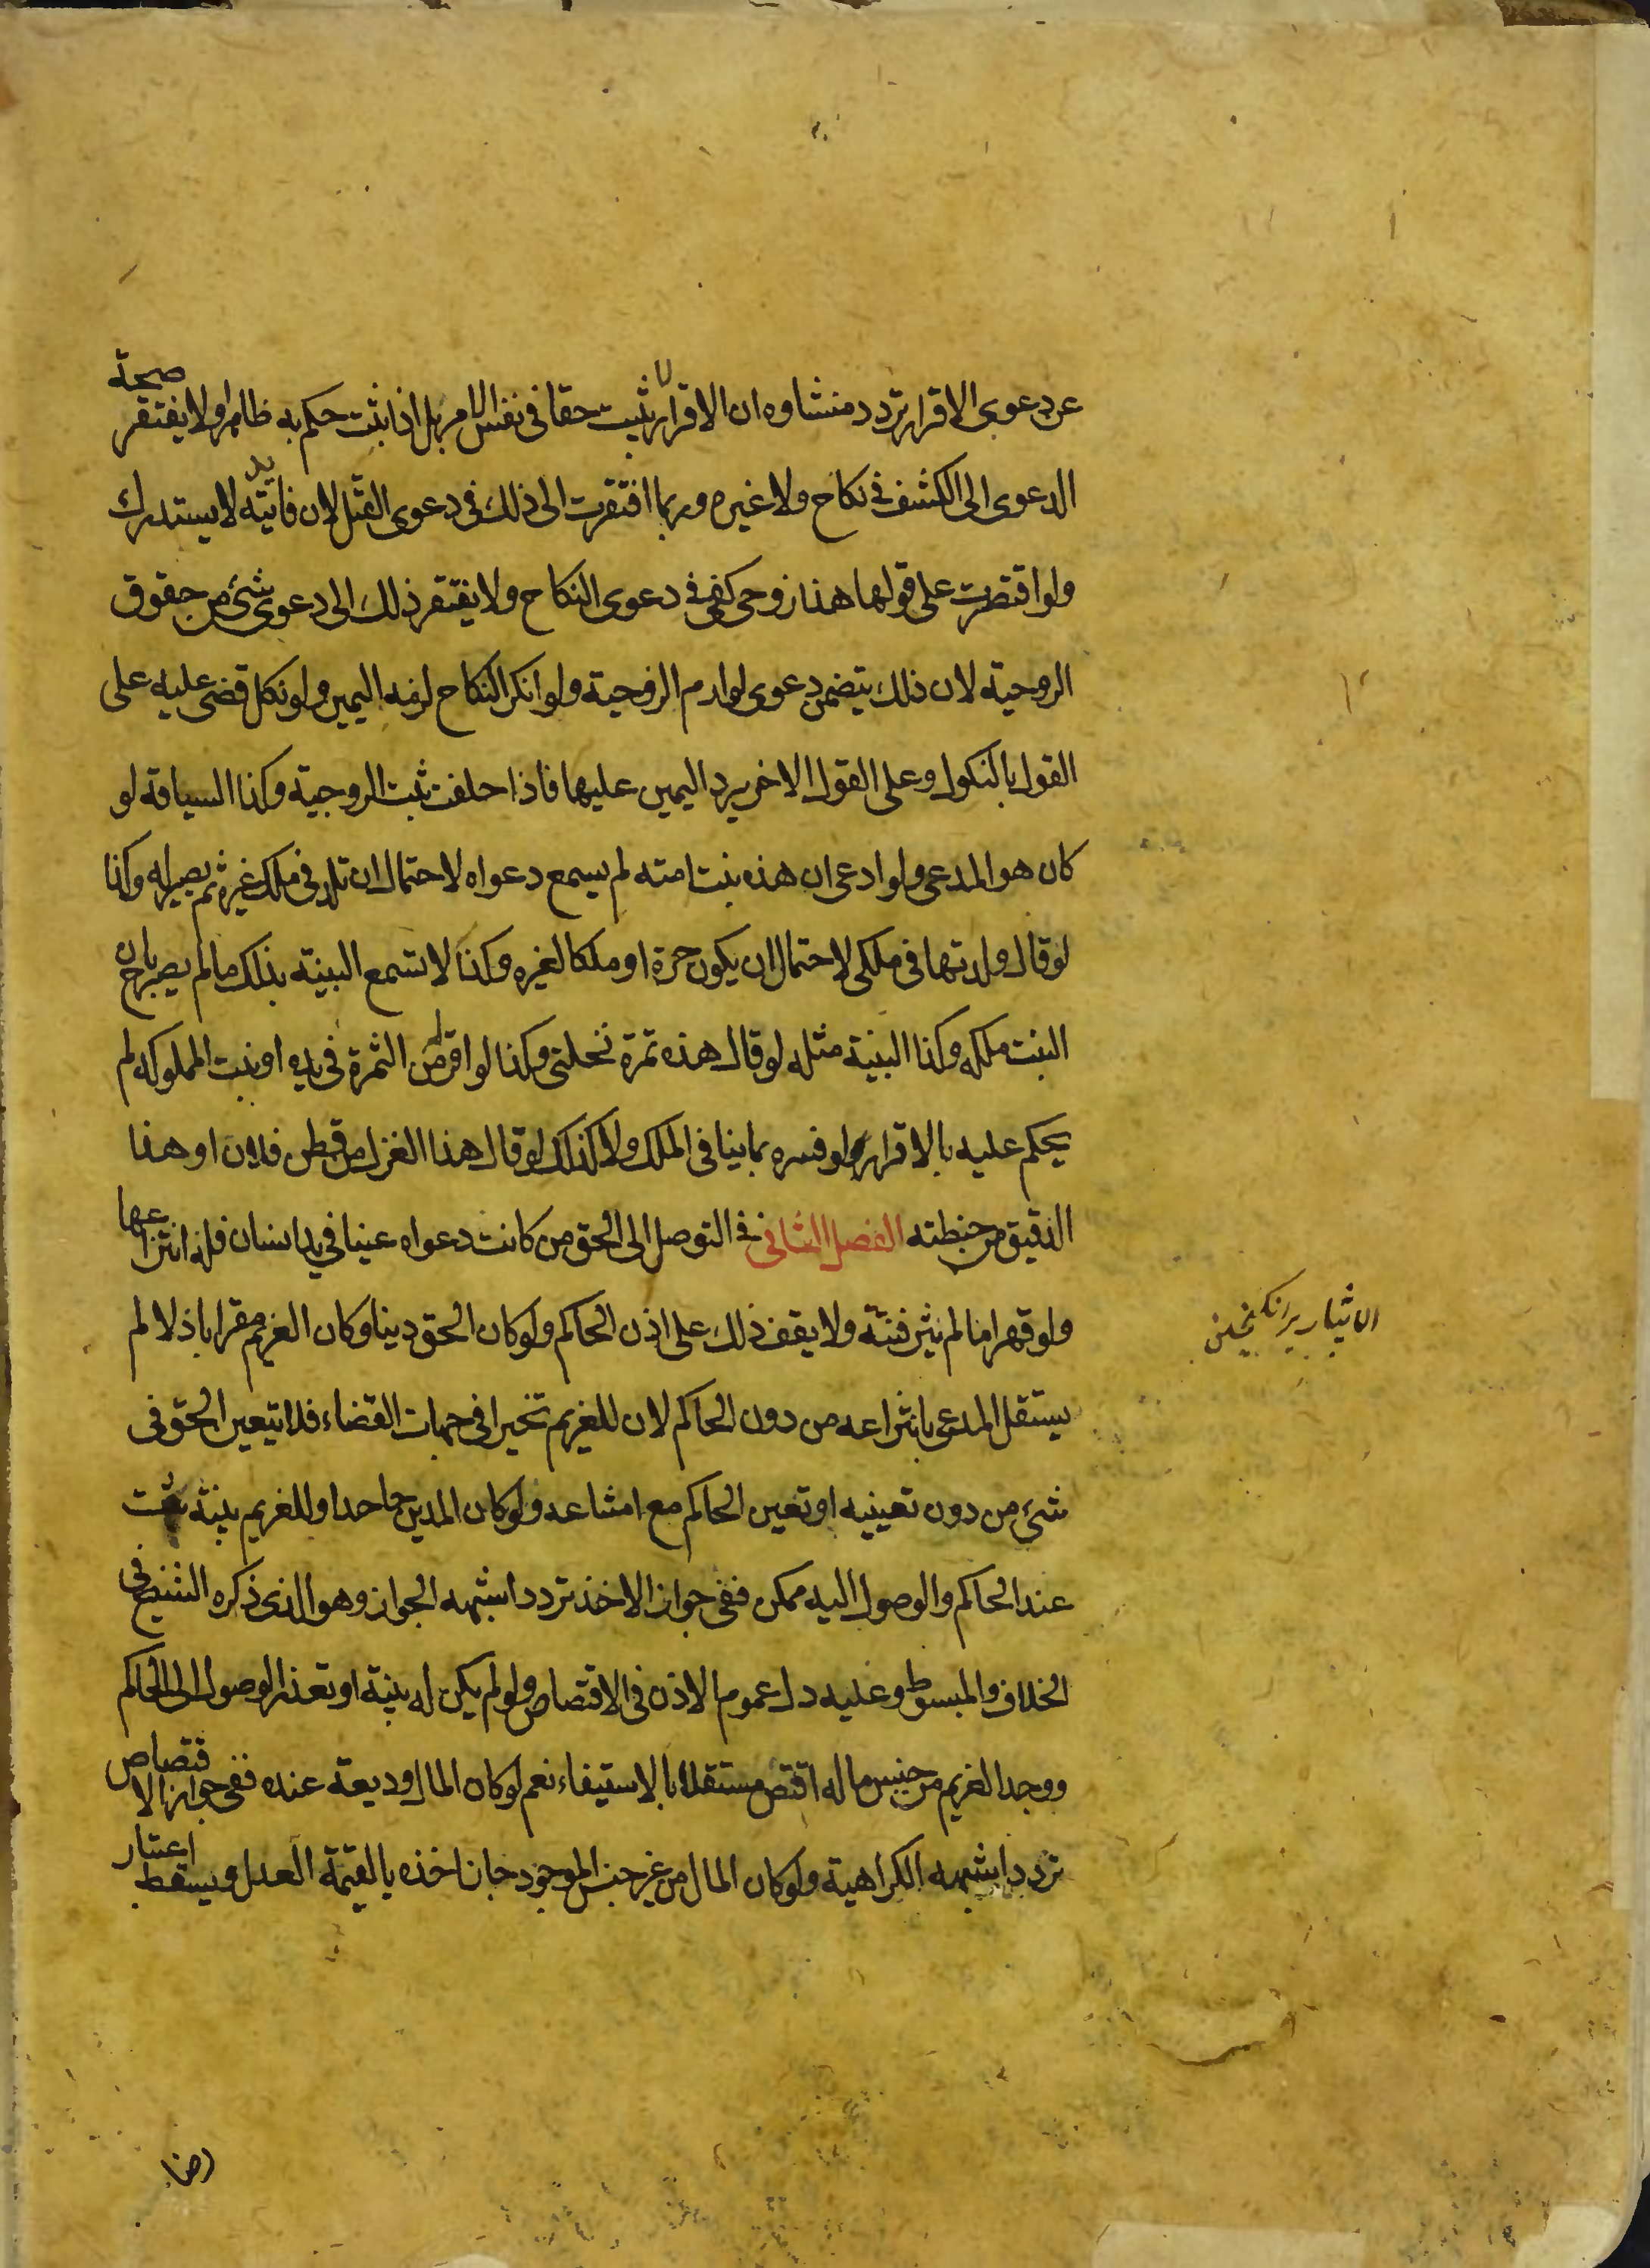 عن دعوى الاقرار تردد منشاوه ان الاقرار لا يثبت حقا فى نفس الامر بل اذا ثبت حكم به ظاهرا ولا يفتقر صحة
الدعوى الى الكشف فى نكاح ولا غيره وربما افتقرت الى ذلك فى دعوى القتل لان فائته لا يستدرك
ولو اقتصرت على قولها هذا زوجى كفى فى دعوى النكاح ولا يفتقر ذلك الى دعوى شئ من حقوق
الزوجية لان ذلك يتضمن دعوى لوازم الزوجية ولو انكر النكاح لزمه اليمين ولو نكل قضى عليه على
القول بالنكول وعلى القول الاخر يرد اليمين عليها فاذا حلفت ثبت الزوجية وكذا السياقة لو
كان هو المدعى ولو ادعى ان هذه بنت امته لم يسمع دعواه لاحتمال ان تلد فى ملك غيره ثم يصير له وكذا
لو قال ولدتها فى ملكى لاحتمال ان يكون حرة او ملكا لغيره وكذا لا تسمع البينة بذلك ما لم يصرح بان
البنت ملكه وكذا البينة مثله لو قال هذه ثمرة نخلتى وكذا لو اقر من الثمرة فى يده او بنت المملوكه لم
يحكم عليه بالاقرار ولو فسره بما ينافى الملك ولا كذلك لو قال هذا الغزل من قطن فلان او هذا
الدقيق من حنطته الفصل الثانى فى التوصل الى الحق من كانت دعواه عينا فى يد انسان فله انتزاعها
ولو قهرا ما لم يثر فتنة ولا يقف ذلك على اذن الحاكم ولو كان الحق دينا وكان الغريم مقرا باذلا لم
يستقل المدعى بانتزاعه من دون الحاكم لان للغريم تخيرا فى جهات القضاء فلا يتعين الحق فى
شئ من دون تعيينه او تعيين الحاكم مع امتناعه ولو كان المدين جاحدا وللغريم بينة تثبت
عند الحاكم والوصول اليه ممكن ففى جواز الاخذ تردد اشبهه الجواز وهو الذى ذكره الشيخ فى
الخلاف والمبسوط وعليه دل عموم الاذن فى الاقتصاص ولو لم يكن له بينة او تعذر الوصول الى الحاكم
ووجد الغريم من جنس ماله اقتص مستقلا بالاستيفاء نعم لو كان المال وديعة عنده ففى جواز الاقتصاص
تردد اشبهه الكراهية ولو كان المال من غير جنس الموجود جاز اخذه بالقيمة العدل ويسقط اعتبار
الاثيار برانكيختن
رضا